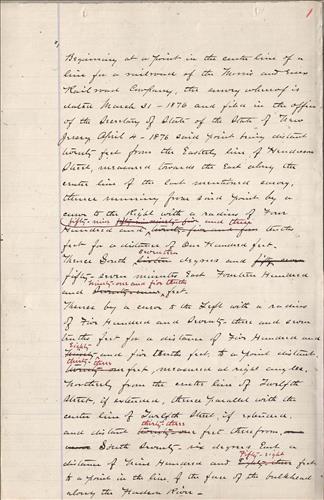 1
Beginning at a point in the center line of a
line for a railroad of the Morris and Essex
Railroad Company, the survey whereof is
dated March 31 - 1876 and filed in the office
of the Secretary of State of the State of New
Jersey April 4 - 1876 said point being distant
twenty feet from the Easterly line of Henderson
Street, measured towards the East along the
center line of the last mentioned survey,
thence running from said point by a
curve to the Right with a radius of Four
fifty-nine and three
Hundred and tenths
feet for a distance of One Hundred feet.
seventeen
Thence South sixteen degrees and
fifty-seven minutes East Fourteen Hundred
ninety-one and five tenths
and feet.
Thence by a curve to the Left with a radius
of Five Hundred and Seventy-three and seven
tenths feet for a distance of Five Hundred and
Eighty
and five tenths feet, to a point distant,
thirty-three
feet, measured at right angles,
Northerly from the center line of Twelfth
Street, if extended, thence parallel with the
center line of Twelfth Street, if extended,
thirty-three
and distant feet therefrom,
South Seventy-six degrees East a
Fifty-eight
distance of Nine Hundred and feet
to a point in the line of the face of the bulkhead
along the Hudson River -